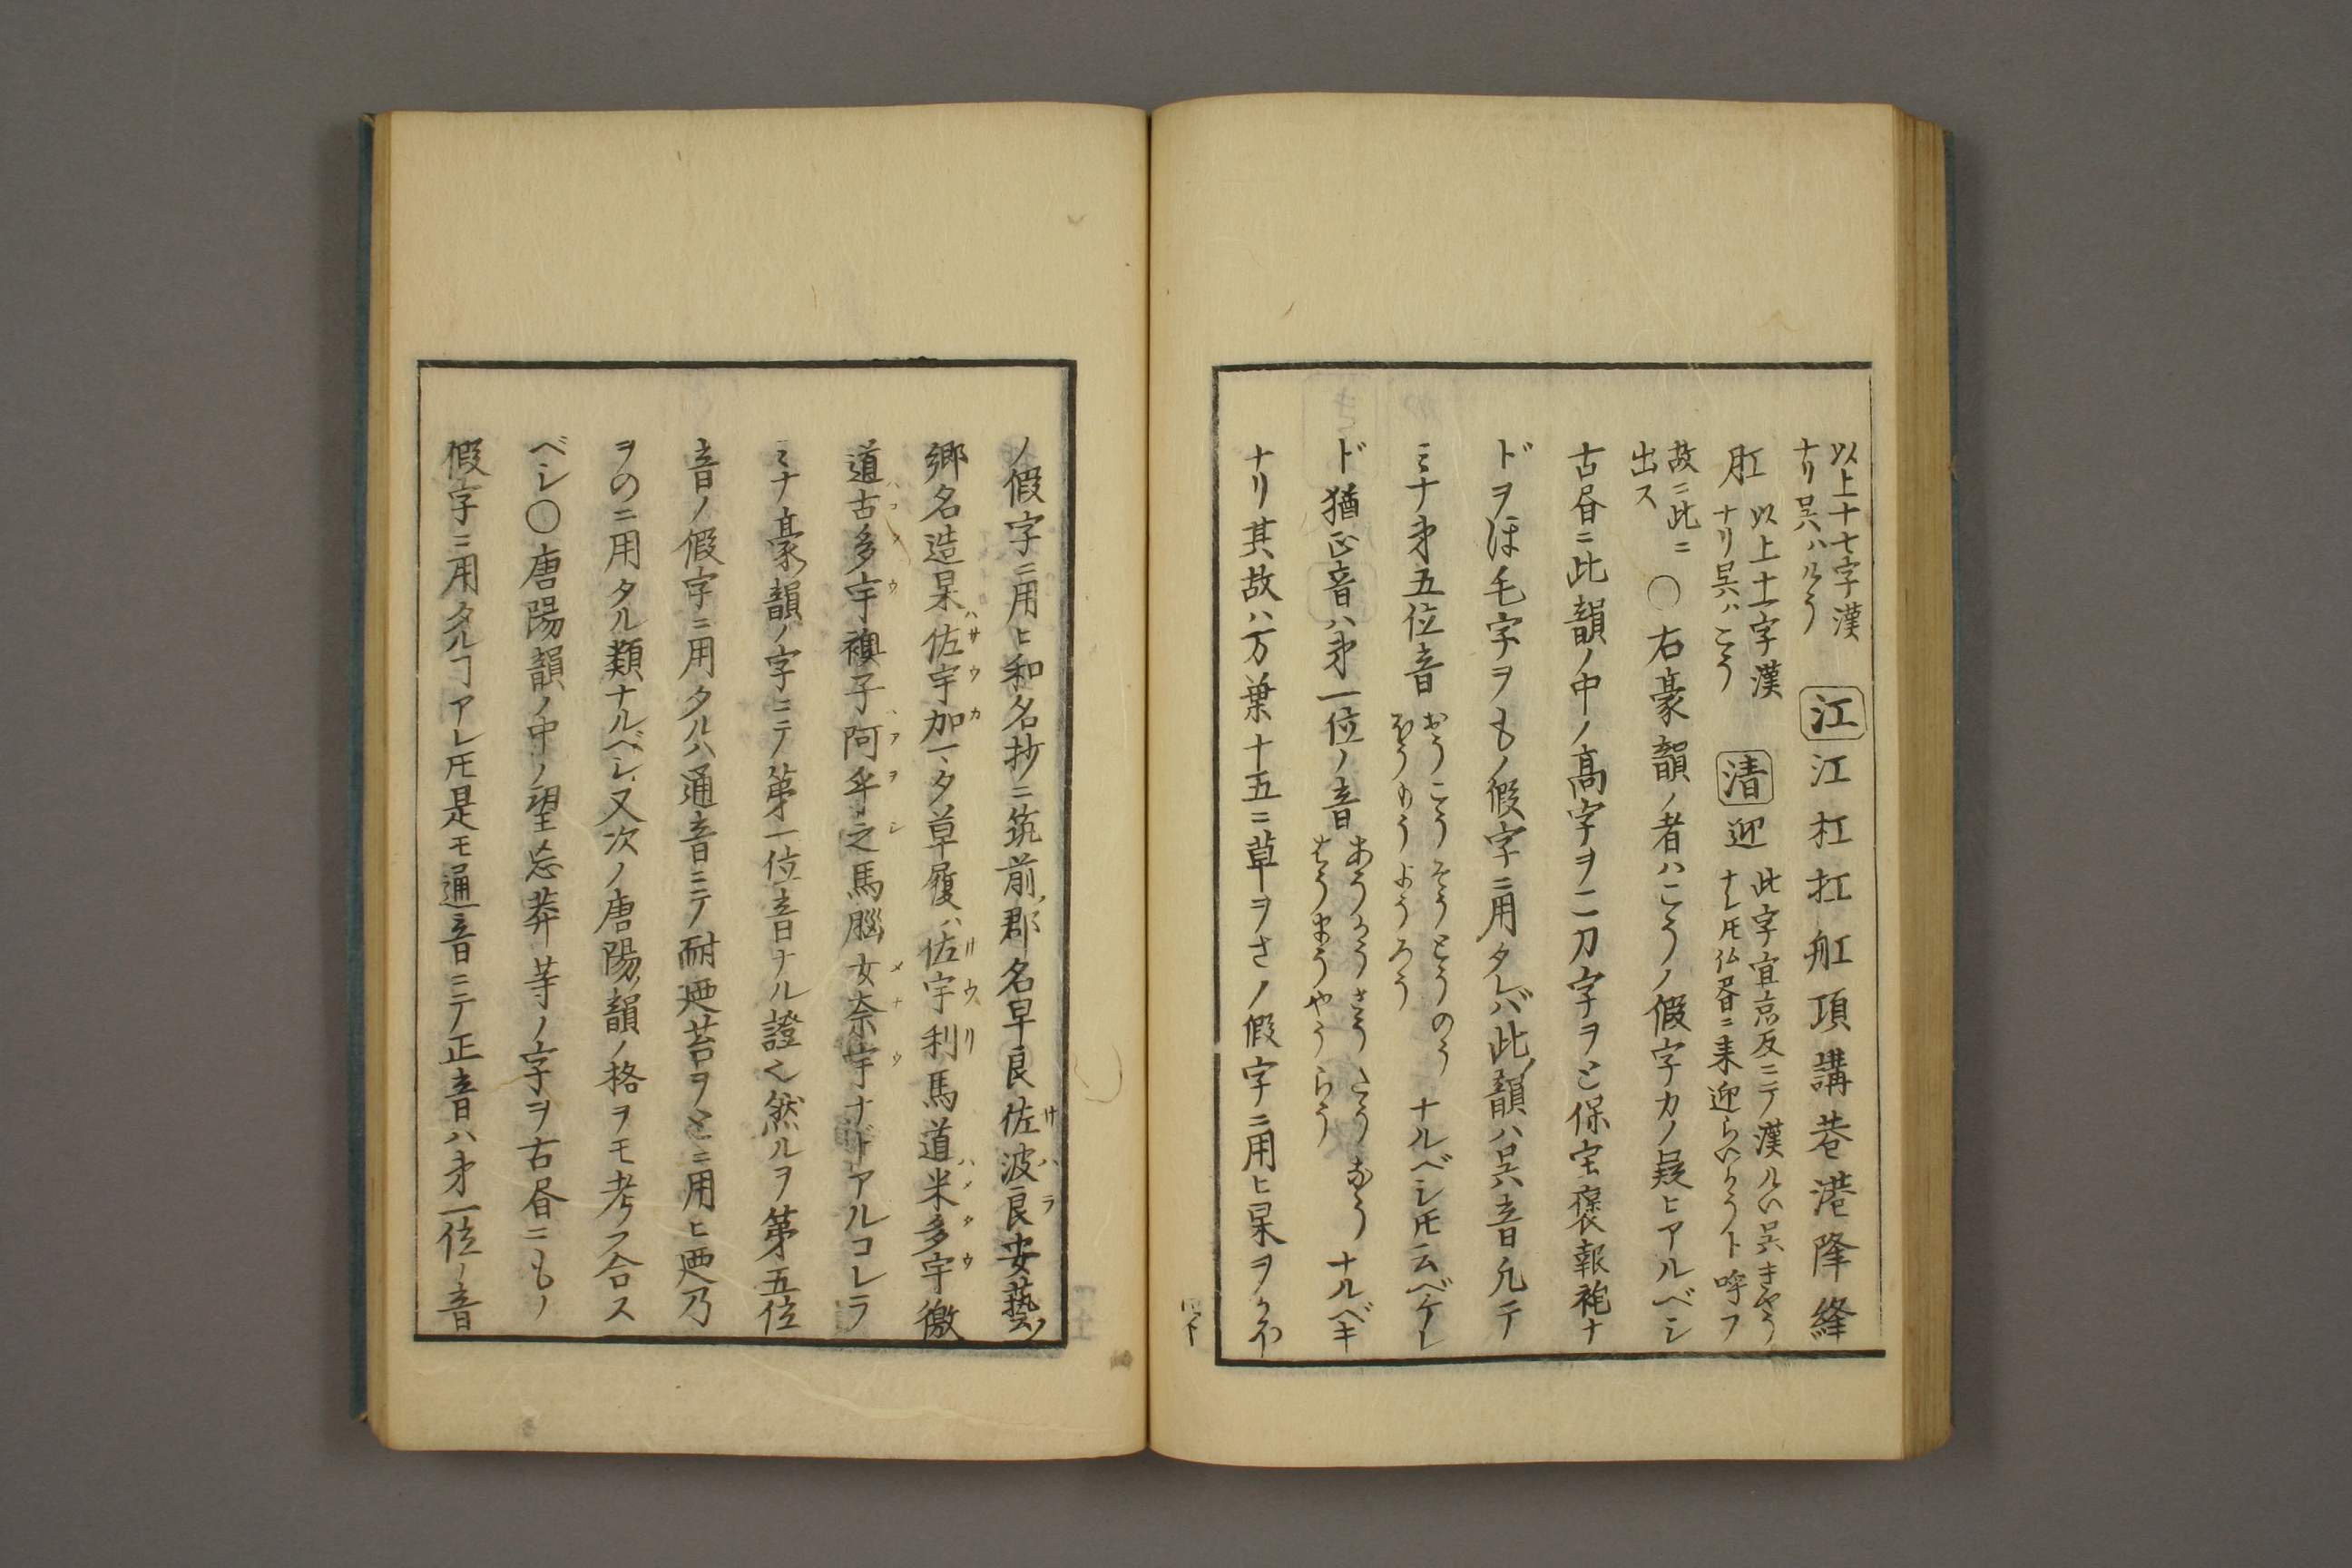 以上十七字漢
ナリ呉ハけう
江 江 杠 扛 舡 項 講 巷 港 降 絳
肛
以上十一字漢
ナリ呉ハこう
清 迎
此字宜京反ニテ漢げい呉きやう
ナレ𪜈仏昬ニ来迎らいかうト呼フ
故ニ此ニ
出ス
〇右豪韻ノ者ハこうノ假字カノ疑ヒアルベシ
古昬ニ此韻ノ中ノ髙字ヲこ刀字ヲと保宝褒報袍ナ
ドヲほ毛字ヲもノ假字ニ用タレバ此ノ韻ハ呉音凡テ
ミナ㐧五位音
おうこうそうとうのう
ほうもうようろう
ナルベシ𪜈云ベケレ
ド猶正音ハ㐧一位ノ音
あうかうさうたうなう
はうまうやうらう
ナルベキ
ナリ其故ハ万葉十五ニ草ヲさノ假字ニ用ヒ杲ヲかほ
四十
ノ假字ニ用ヒ和名抄ニ筑前ノ郡名早良佐波良安藝ノ
サハラ
郷名造杲佐宇加一タ草履ハ佐宇利馬道米多宇徼
ハサウカ
リウリ
ハメタウ
道古多宇襖子阿乎之馬腦女奈宇ナドアルコレラ
ハコタウ
ハアヲシ
メナウ
ミナ豪ノ韻ノ字ニテ第一位音ナル證也然ルヲ第五位
音ノ假字ニ用タルハ通音ニテ耐廼苔ヲとニ用ヒ廼乃
ヲのニ用タル類ナルベシ又次ノ唐陽ノ韻ノ格ヲモ考フ合ス
ベシ〇唐陽韻ノ中ノ望忘莽等ノ字ヲ古昬ニもノ
假字ニ用タルヿアレ𪜈是モ通音ニテ正音ハ㐧一位ノ音